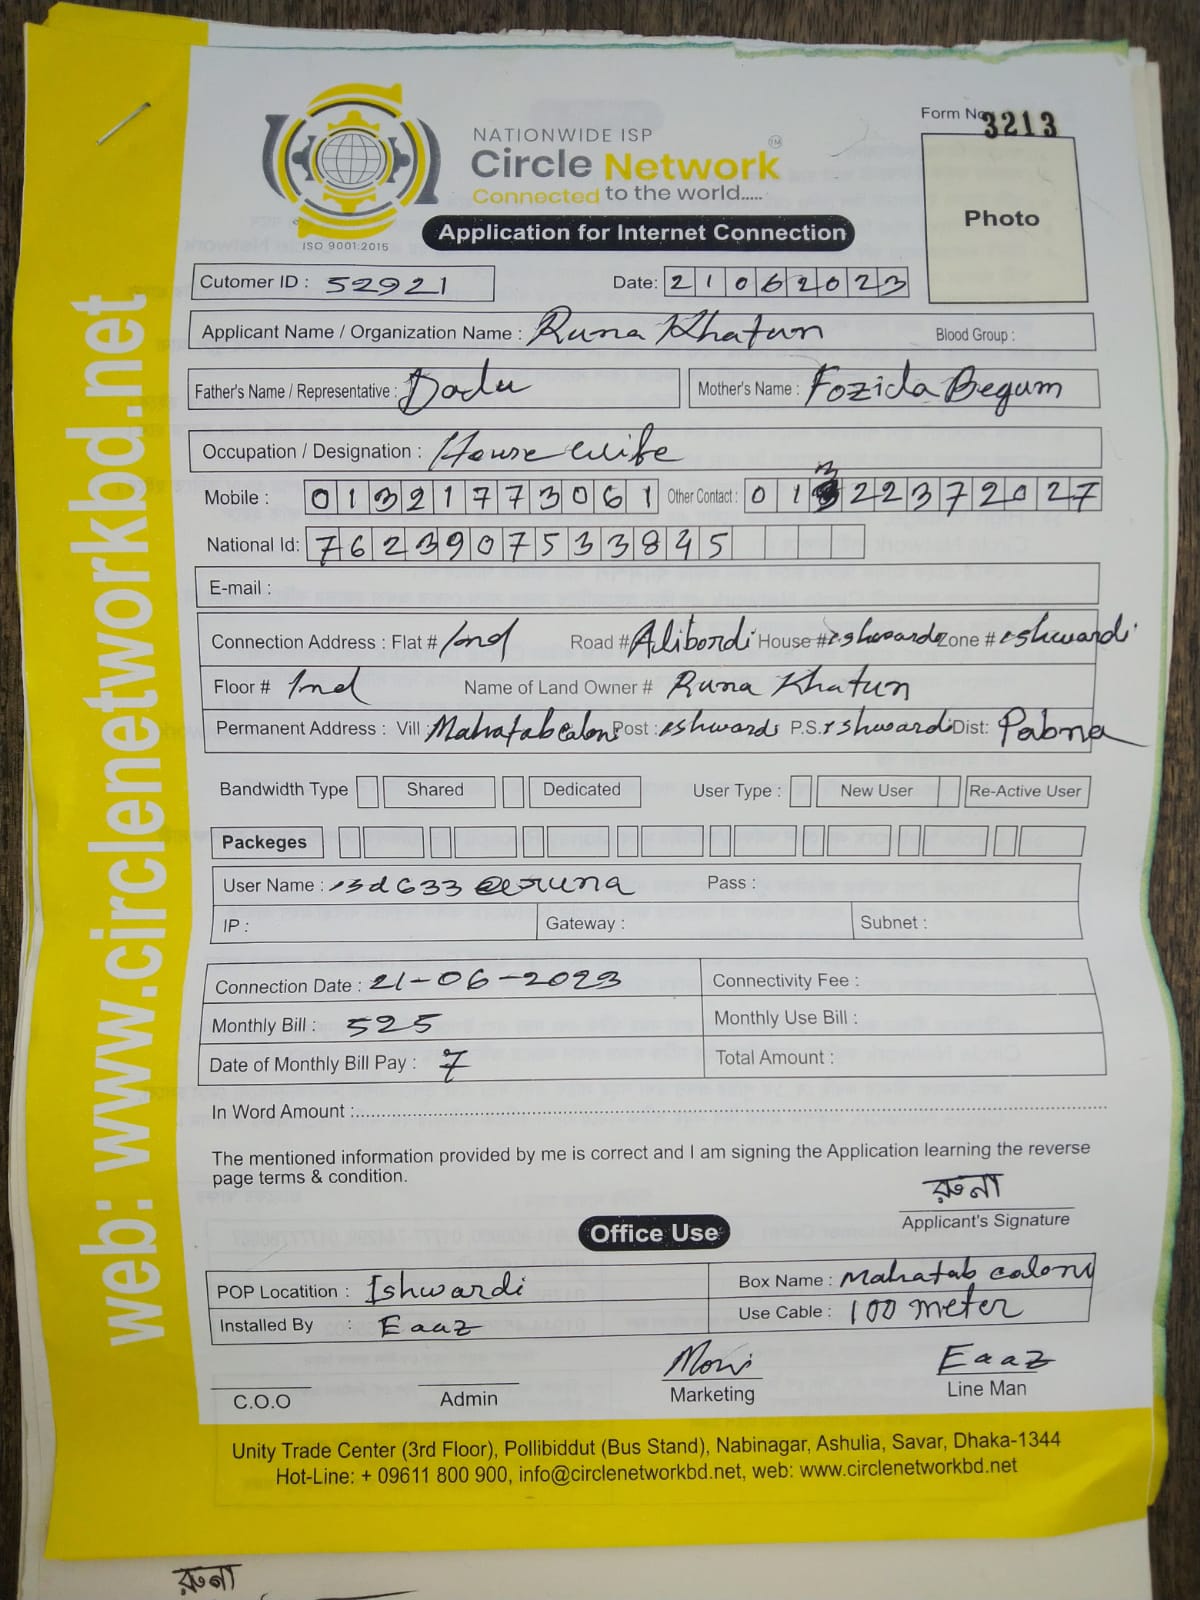 web: www.circlenetworkbd.net
NATIONWIDE ISP
Circle Network TM
Connected to the world.....
ISO 9001:2015
Form No 3213
Photo
Application for Internet Connection
Cutomer ID : 52921 Date: 21062023
Applicant Name / Organization Name : Runa Khatun Blood Group :
Father's Name / Representative : Dadu Mother's Name : Fozida Begum
Occupation / Designation : House wife
Mobile : 01321773061 Other Contact : 01322372027
National Id: 7623907533845
E-mail :
Connection Address : Flat # 1nd Road # Alibordi House # ishwardi Zone # ishwardi
Floor # 1nd Name of Land Owner # Runa Khatun
Permanent Address : Vill : Mahatab calon Post : ishwardi P.S. ishwardi Dist: Pabna
Bandwidth Type Shared Dedicated User Type : New User Re-Active User
Packeges
User Name : Pass :
IP : Gateway : Subnet :
Connection Date : 21-06-2023 Connectivity Fee :
Monthly Bill : 525 Monthly Use Bill :
Date of Monthly Bill Pay : 7 Total Amount :
In Word Amount :
The mentioned information provided by me is correct and I am signing the Application learning the reverse
page terms & condition.
রুনা
Applicant's Signature
Office Use
POP Locatition : Ishwardi Box Name : Mahatab caloni
Installed By : Eaaz Use Cable : 100 meter
Moni Eaaz
C.O.O Admin Marketing Line Man
Unity Trade Center (3rd Floor), Pollibiddut (Bus Stand), Nabinagar, Ashulia, Savar, Dhaka-1344
Hot-Line: + 09611 800 900, info@circlenetworkbd.net, web: www.circlenetworkbd.net
রুনা